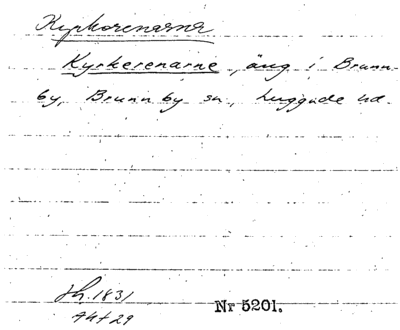 Kyrkorenarna
Kyrkerenarne, äng i Brunn-
by, Brunnby sn, Luggude hd.
Sh. 1831
Akt 29
Nr 5201.